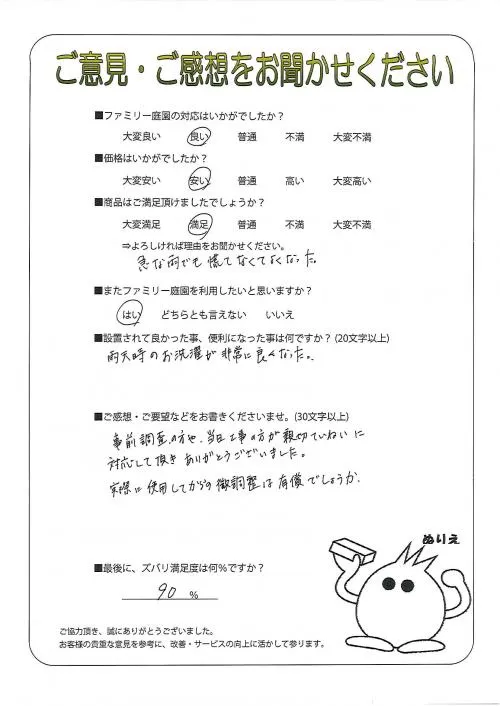 ご意見・ご感想をお聞かせください
■ファミリー庭園の対応はいかがでしたか？
大変良い 良い 普通 不満 大変不満
■価格はいかがでしたか？
大変安い 安い 普通 高い 大変高い
■商品はご満足頂けましたでしょうか？
大変満足 満足 普通 不満 大変不満
⇒よろしければ理由をお聞かせください。
急な雨でも慌てなくてよくなった。
■またファミリー庭園を利用したいと思いますか？
はい どちらとも言えない いいえ
■設置されて良かった事、便利になった事は何ですか？(20文字以上)
雨天時のお洗濯が非常に良くなった。
■ご感想・ご要望などをお書きくださいませ。(30文字以上)
事前調査の方や、当日工事の方が親切ていねいに
対応して頂きありがとうございました。
実際に使用してからの微調整は有償でしょうか。
ぬりえ
■最後に、ズバリ満足度は何％ですか？
90 %
ご協力頂き、誠にありがとうございました。
お客様の貴重な意見を参考に、改善・サービスの向上に活かして参ります。